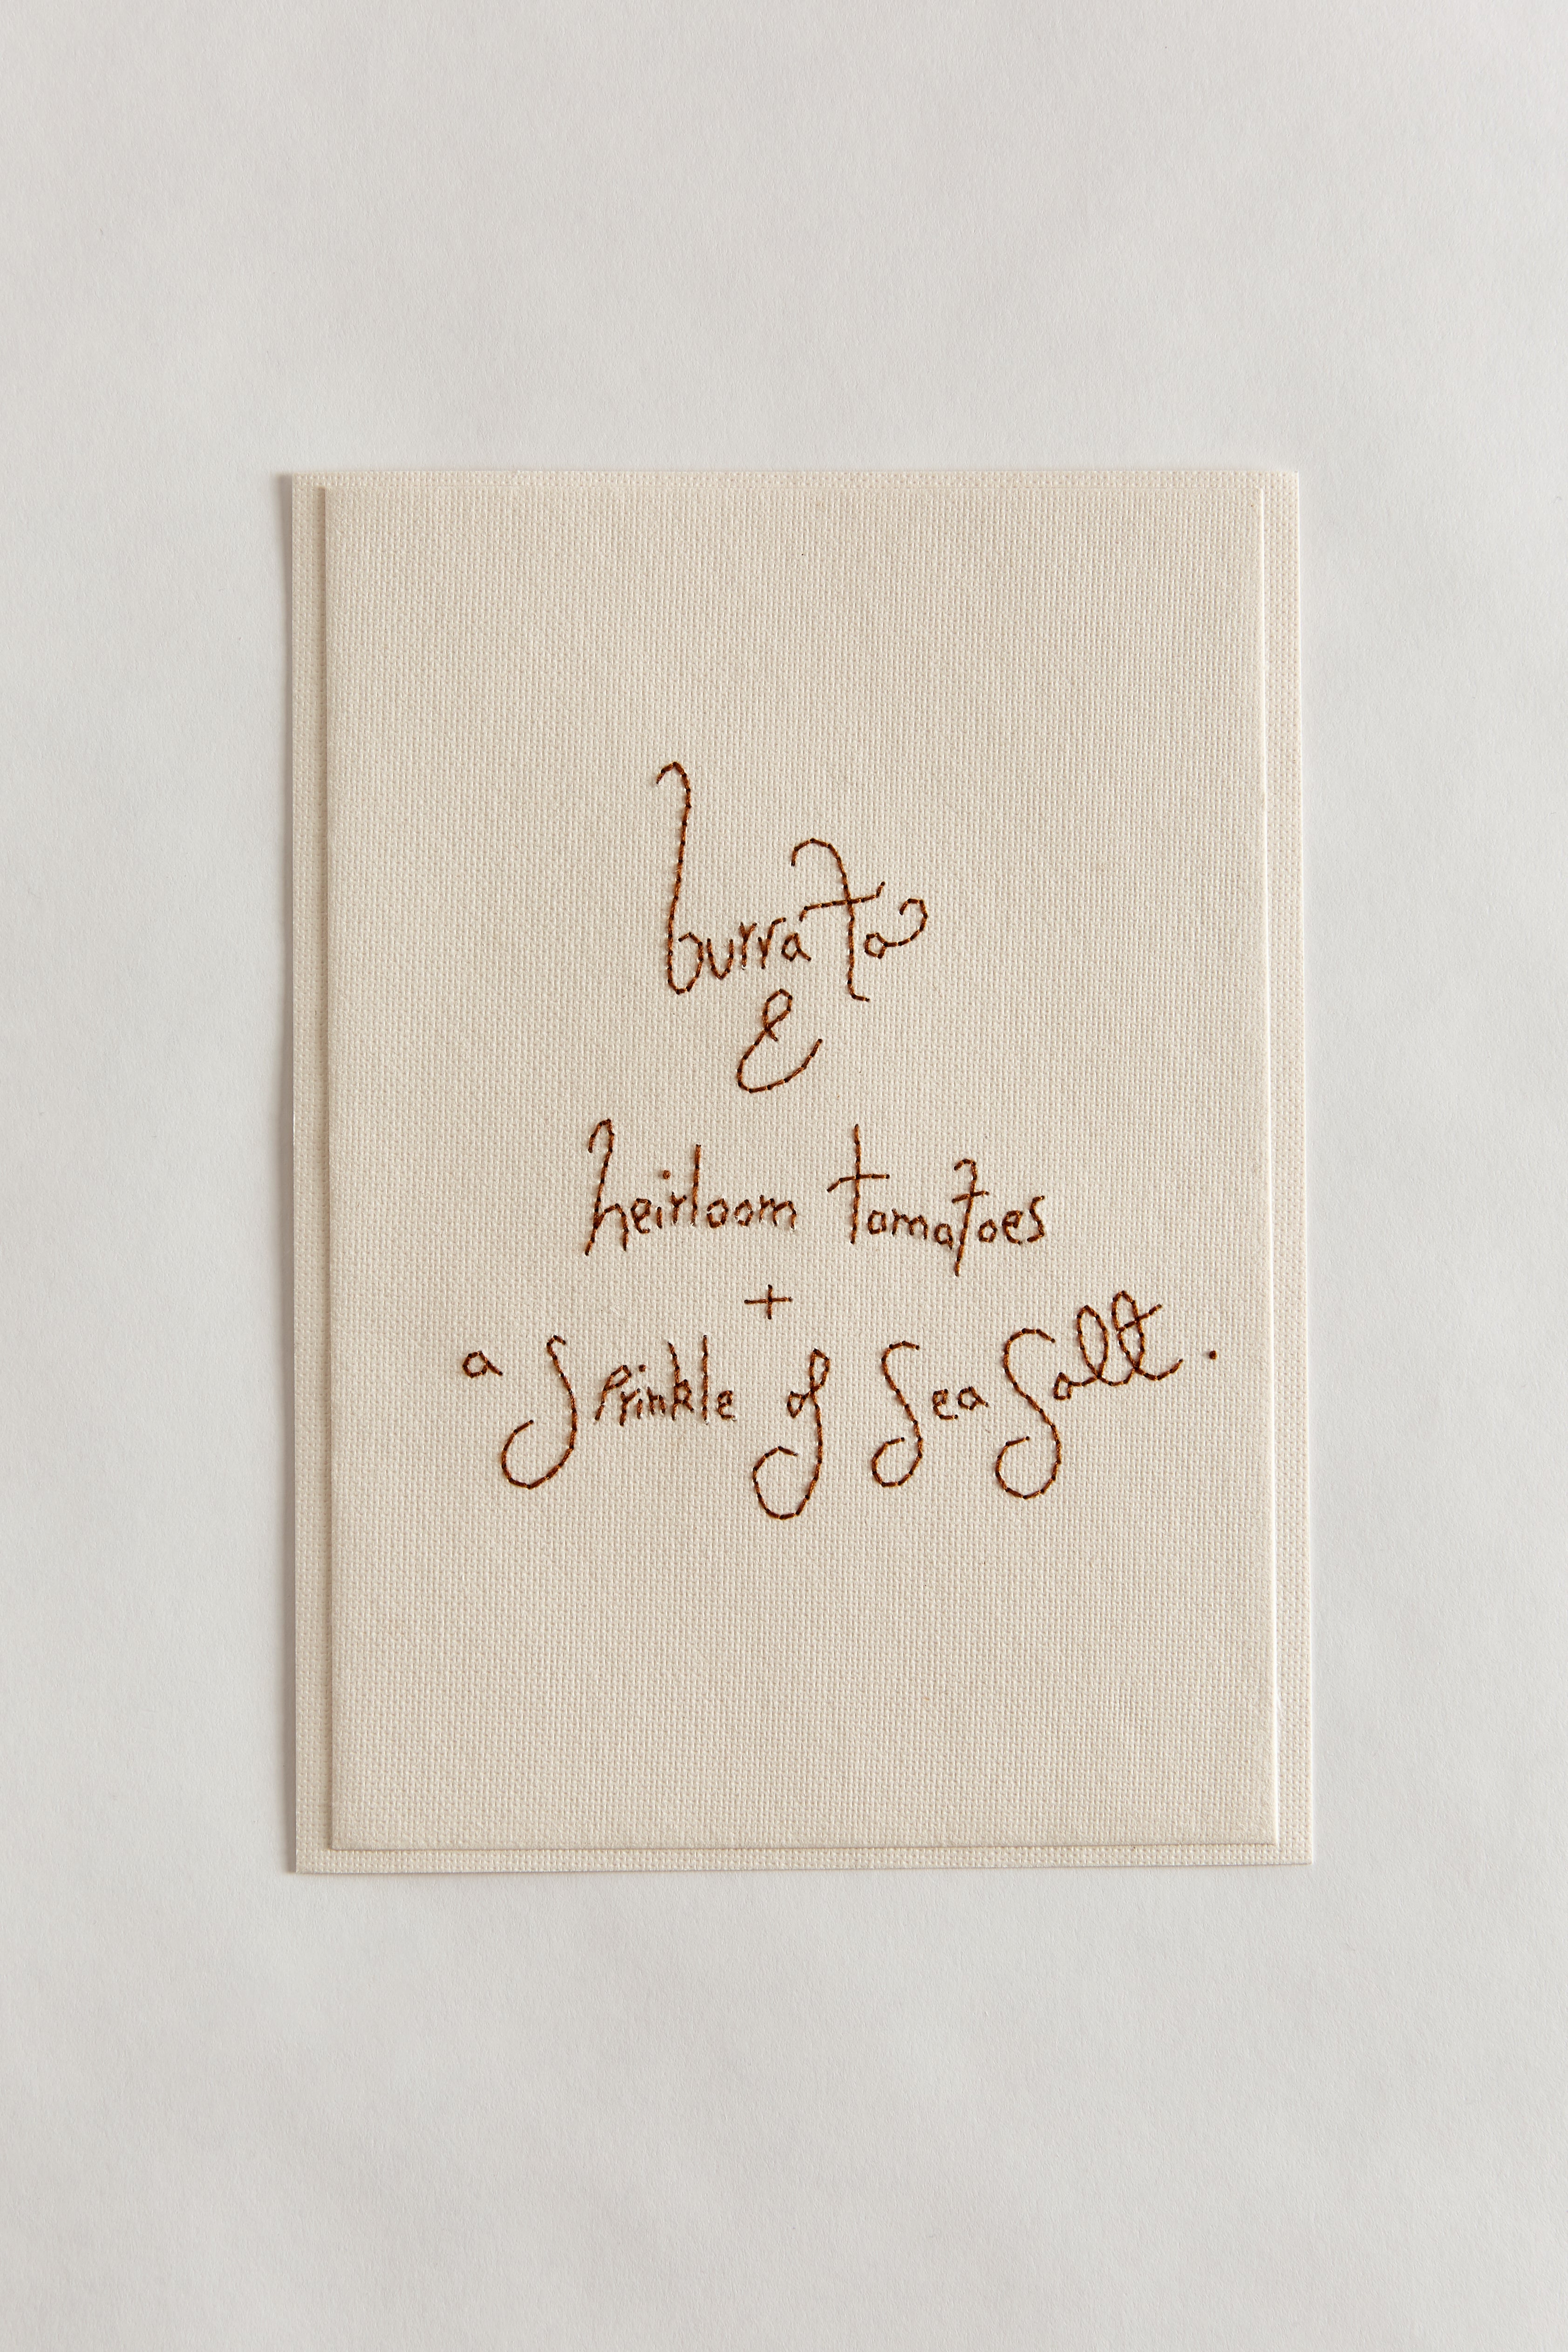 burrata
&
heirloom tomatoes
+
a sprinkle of sea salt.